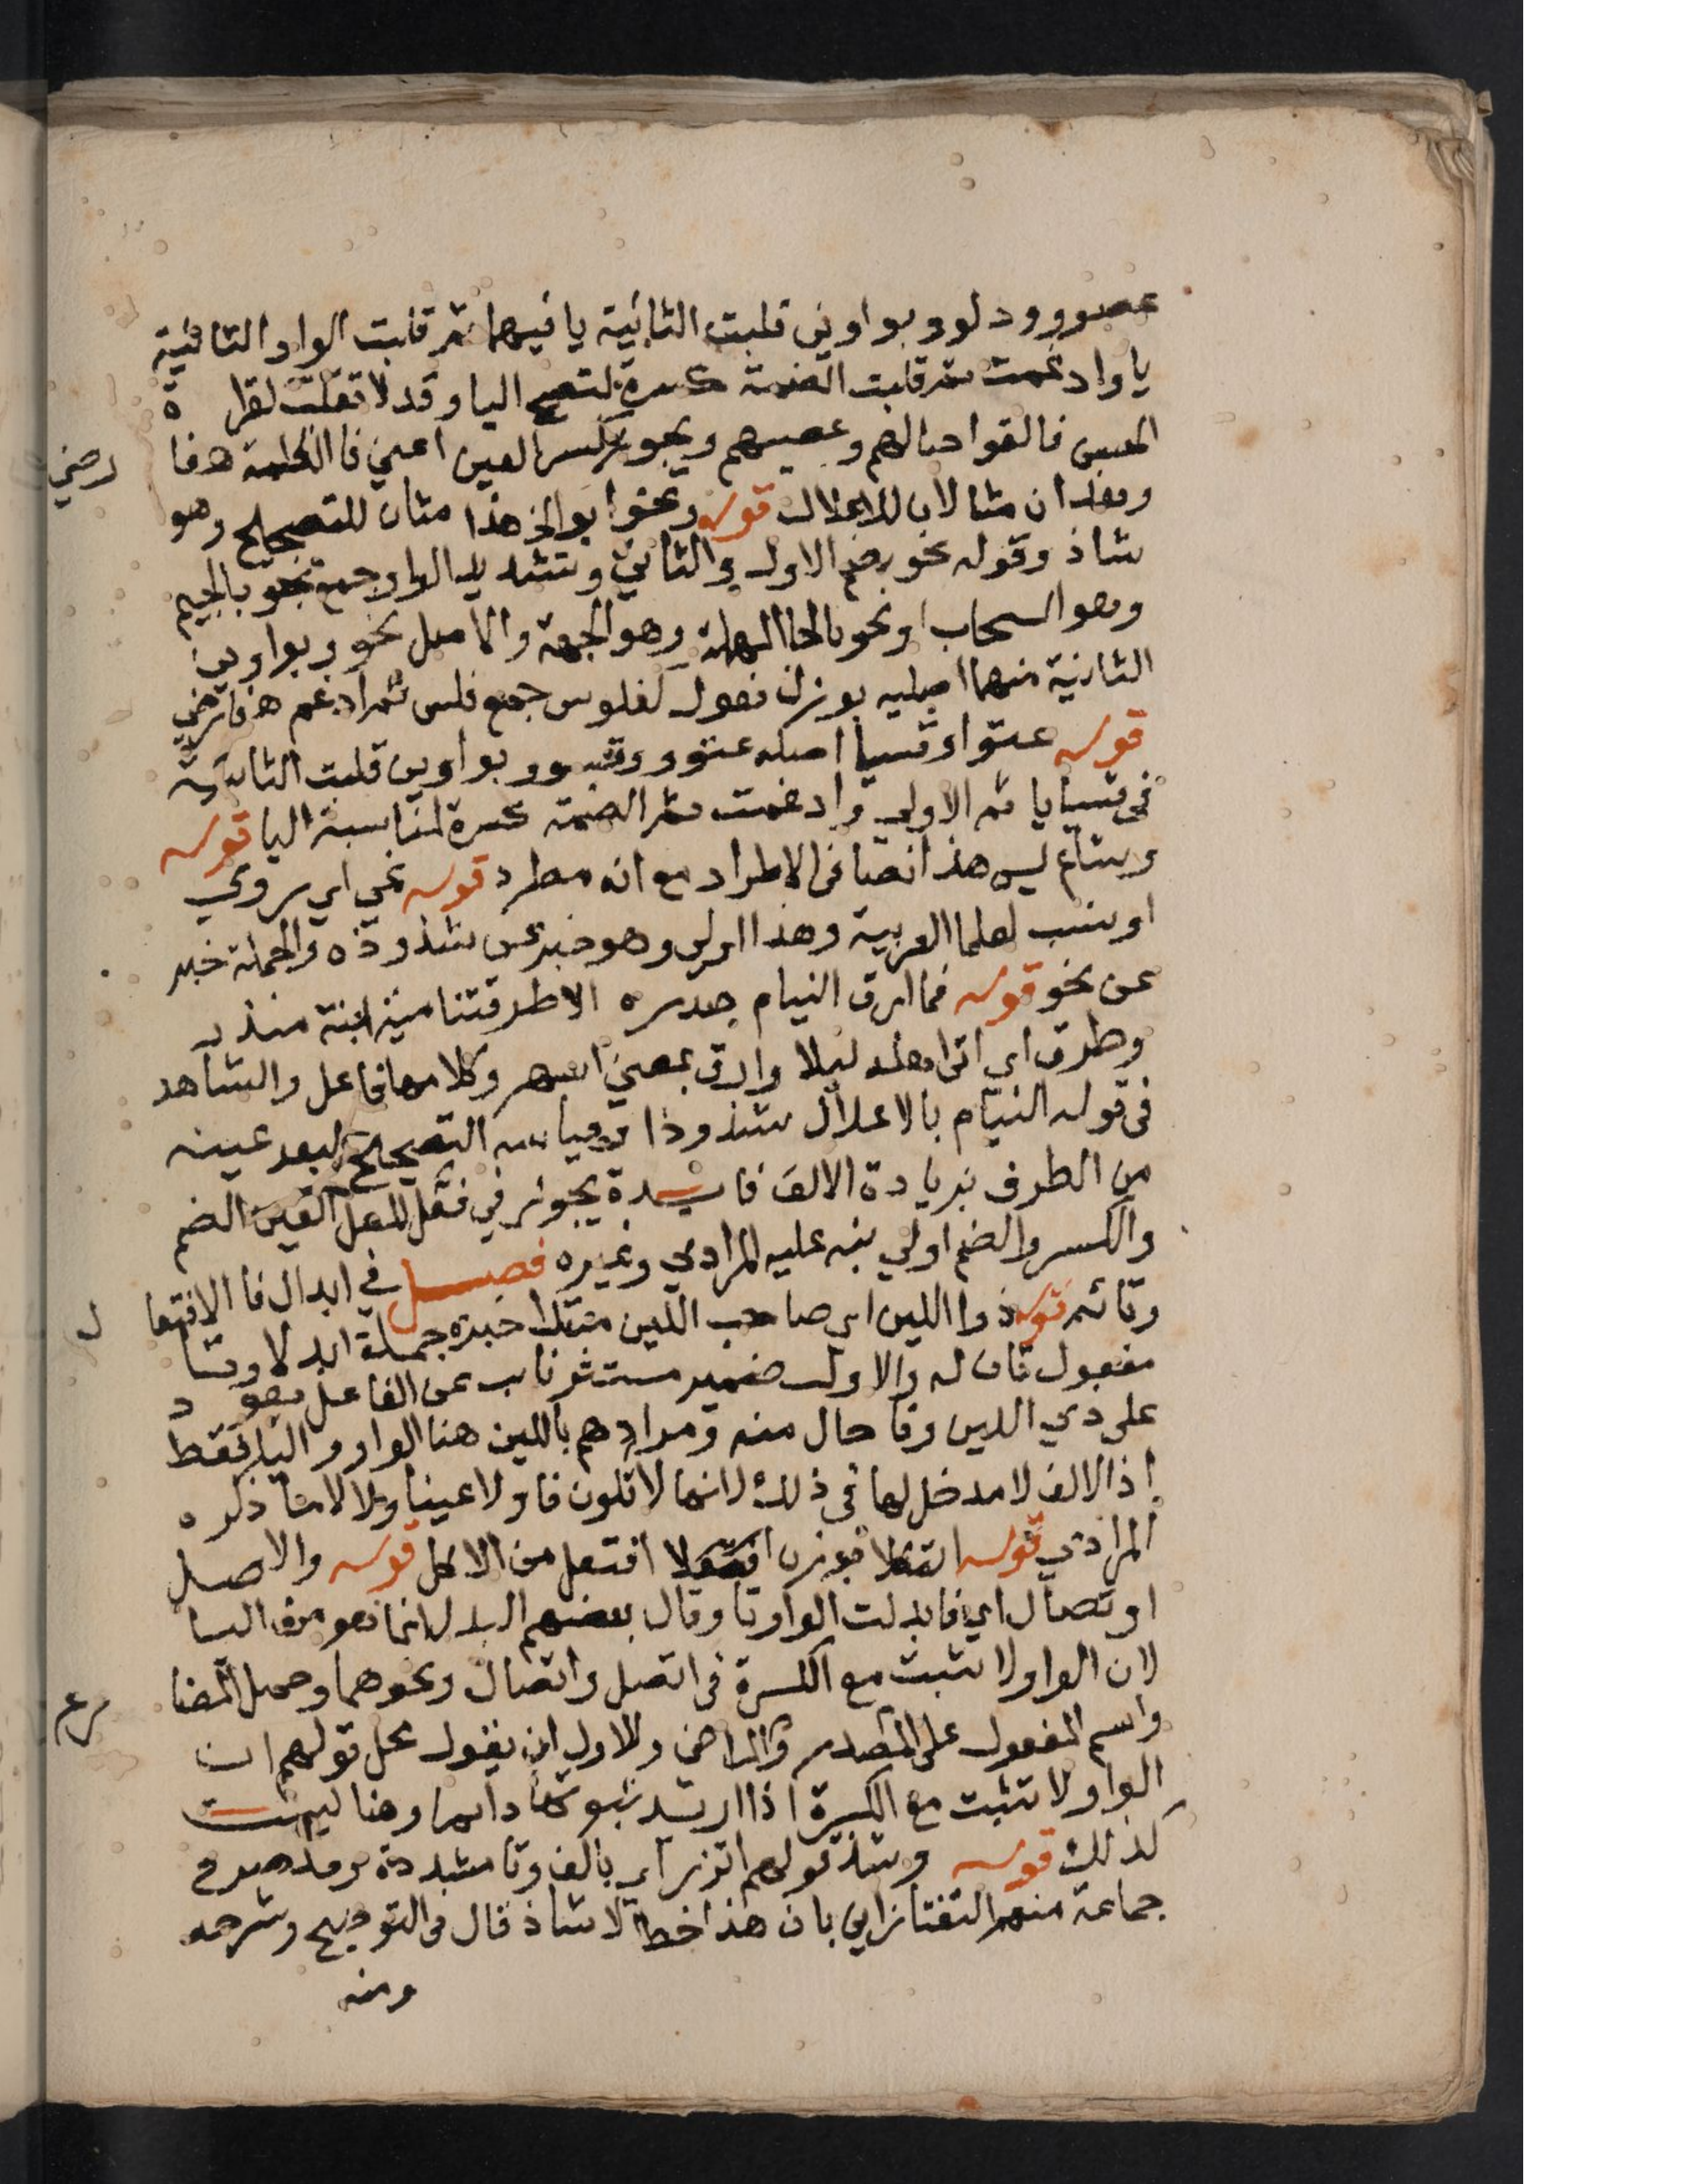 عصوو ودلوو بواوين قلبت الثانية يا فيهما ثم قلبت الواو الثانية
يا وادغمت ثم قلبت الضمة كسرة لتصح اليا وقد لا تقلب لقرا ة
الحسن فالقوا حبالهم وعصيهم ويجوز كسر العين اعني فا الكلمة هذا
وهذان مثالان للاعلال قوله ونحو ابو الخ هذا مثال للتصحيح وهو
شاذ وقوله نحو بضم الاول والثاني وتشديد الواو جمع نجو بالجيم
وهو السحاب او نحو بالحا المهملة وهو الجهة والاصل نحوو بواوين
الثانية منهما اصلية بوزن فعول كفلوس جمع فلس ثم ادغم
قوله عتوا وقسيا اصله عتوو وقسوو بواوين قلبت الثانية
في قسيا يا ثم الاولى وادغمت ثم الضمة كسرة لمناسبة اليا قوله
وشاع ليس هذا نصا في الاطراد مع انه مطرد قوله نمي اي روي
او نسب لعلما العربية وهذا اولى وهو خبر عن شذوذه والجملة خبر
عن نحو قوله فما ارق النيام الا طرقتنا مية ابنة منذر
وطرق اي اتى اهله ليلا وارق بمعنى اسهر وكلامها فاعل والشاهد
في قوله النيام بالاعلال شذوذا وقياسه التصحيح لبعد عينه
من الطرف بزيادة الالف فايدة يجوز في فعل المعل العين الضم
والكسر والضم اولى نبه عليه المرادي وغيره فصل في ابدال فا الافتعا ل
وتائه قوله ذوا اللين اي صاحب اللين مبتدا خبره جملة ابدلا وتا
مفعول ثان له والاول ضمير مستتر نايب عن الفاعل يعو د
على ذي اللين وفا حال منه ومرادهم باللين هنا الواو واليا فقط
اذ الالف لا مدخل لها في ذلك لانها لا تكون فا ولا عينا ولا لاما ذكره
المرادي قوله ائتكلا بوزن افتعلا افتعل من الاكل قوله والاصل
اوتصال اي فابدلت الواو تا وقال بعضهم البدل انما هو من اليا
لان الواو لا تثبت مع الكسرة في اتصل واتصال ونحوهما وحمل المضا رع
واسم المفعول على المصدر والماضي وللاول ان يقول محل قولهم ان
الواو لا تثبت مع الكسرة اذا اريد ثبوتها دايما وهنا ليست
كذلك قوله وشذ قولهم اتزر اي بالف وتا مشددة وقد صرح
جماعة منهم التفتازاني بان هذا خطا لا شاذ قال في التوضيح وشرحه
ومنه